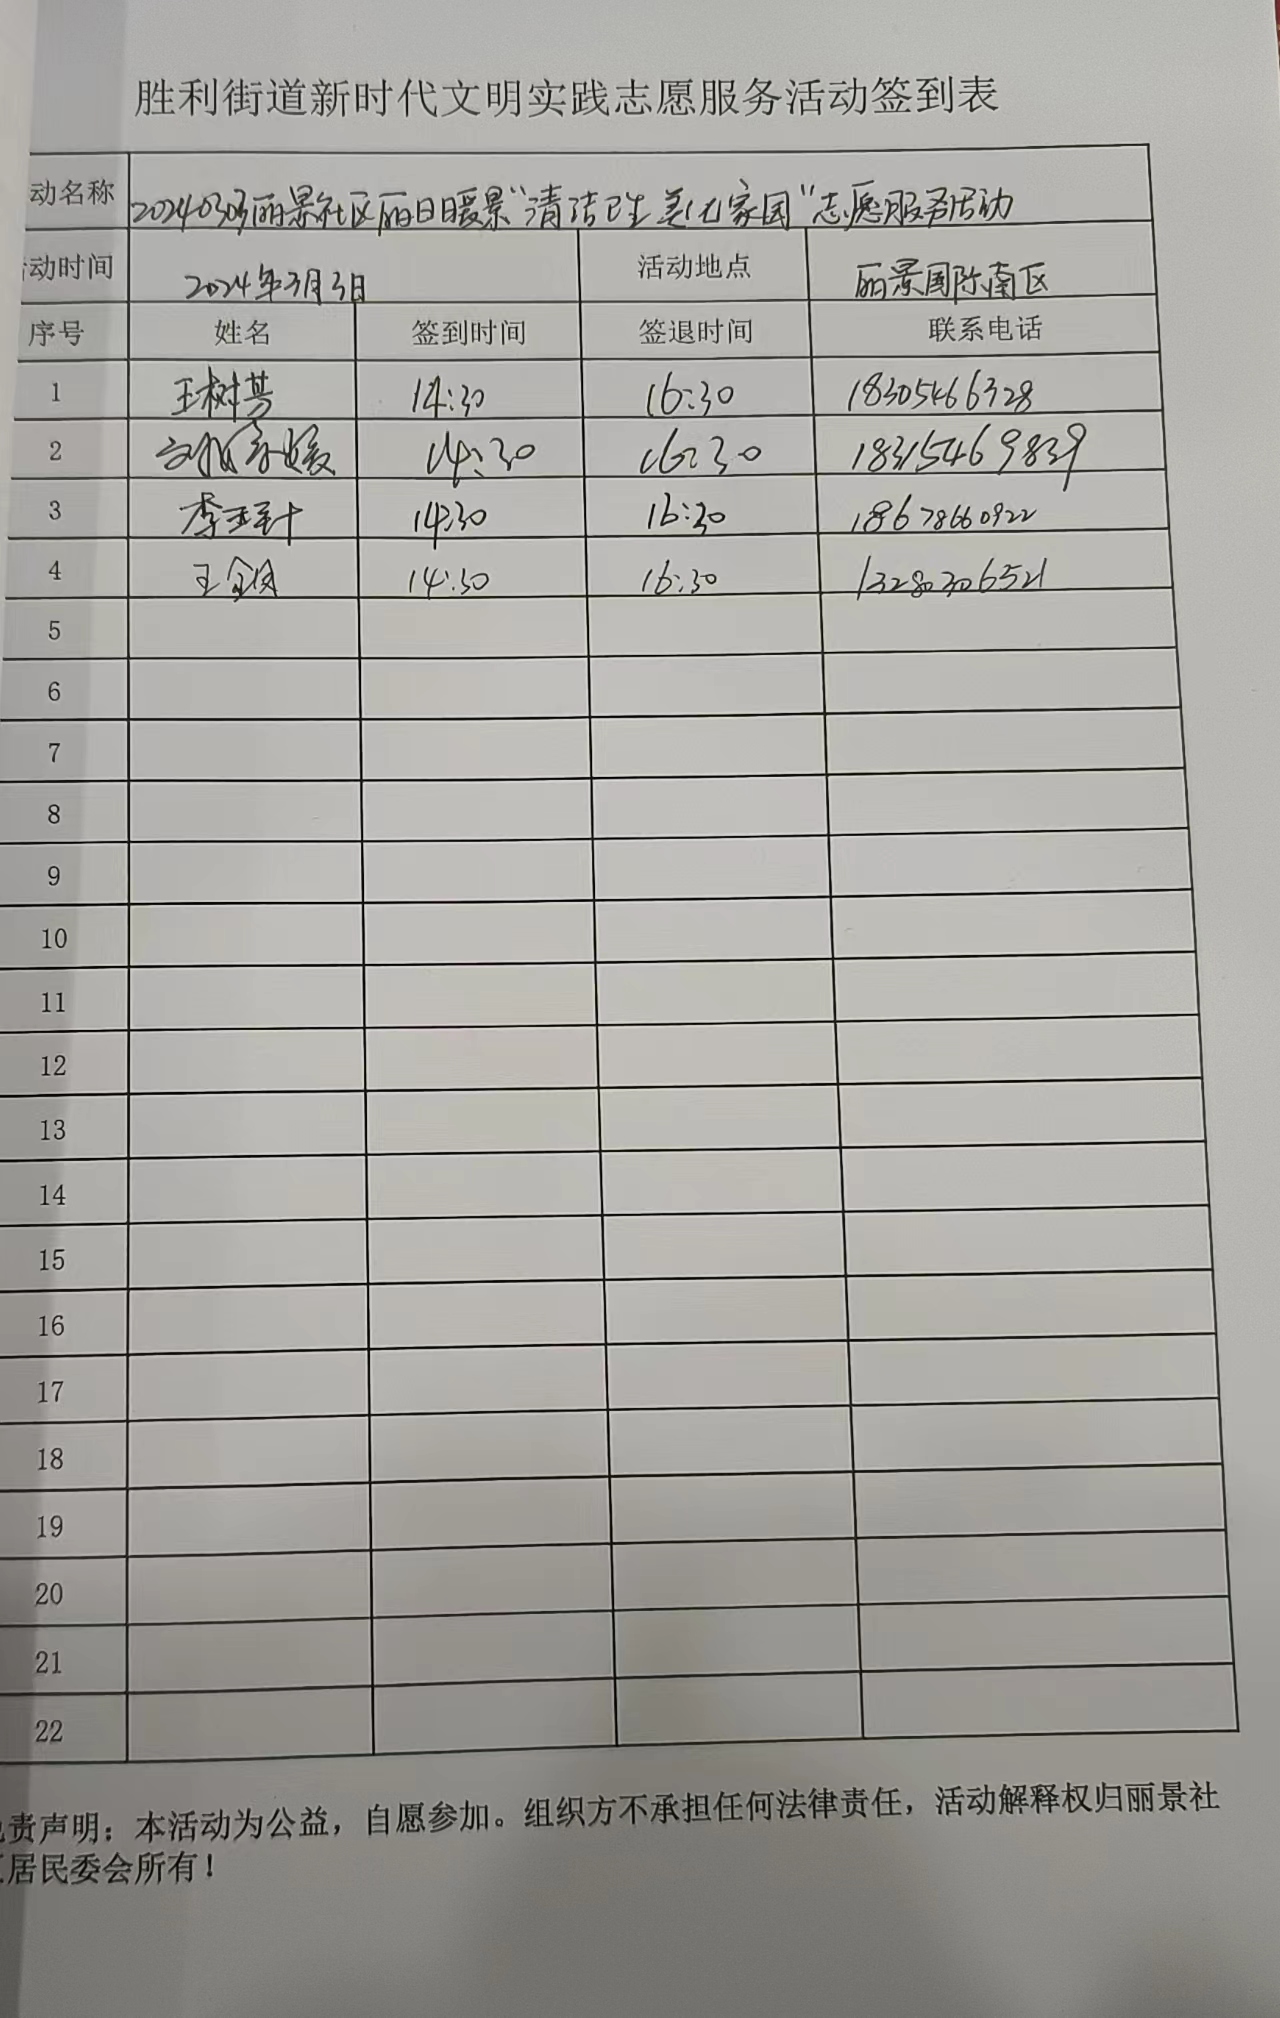 胜利街道新时代文明实践志愿服务活动签到表
动名称 20240303丽景社区丽日暖景“清洁卫生 美化家园”志愿服务活动
动时间 2024年3月3日 活动地点 丽景国际南区
序号 姓名 签到时间 签退时间 联系电话
1 王树芳 14:30 16:30 18305466328
2 14:30 16:30 18315469839
3 14:30 16:30 18678660922
4 14:30 16:30 13280306521
5
6
7
8
9
10
11
12
13
14
15
16
17
18
19
20
21
22
责声明：本活动为公益，自愿参加。组织方不承担任何法律责任，活动解释权归丽景社
居民委会所有！